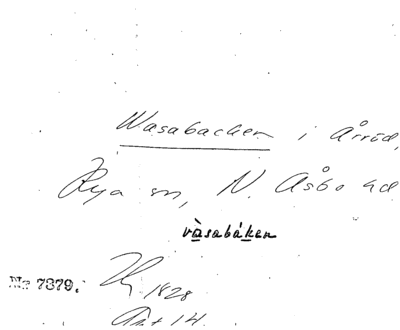 Wasabacken i Årröd,
Rya sn, N. Åsbo hd
vàsabáken
No 7879.
1828
Akt 14.